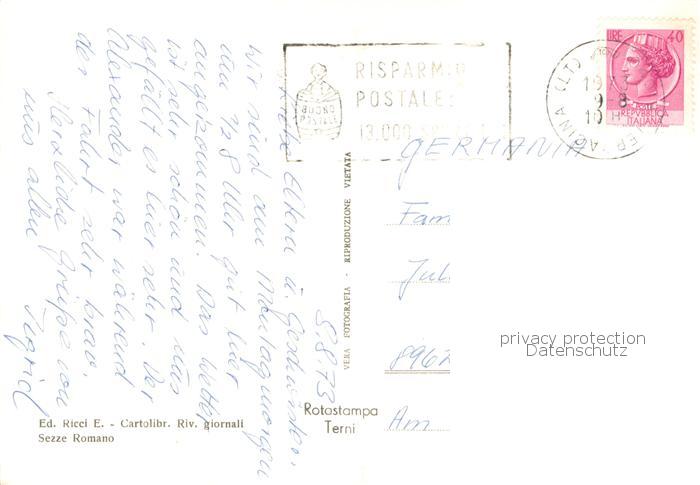 8.8.73
Liebe Eltern u. Geschwister,
wir sind am Montagmorgen
um 1/2 8 Uhr gut hier
angekommen. Das Wetter
ist sehr schön und uns
gefällt es hier sehr. Der
Alexander war während
der Fahrt sehr brav.
Herzliche Grüße von
uns allen Ingrid
Ed. Ricci E. - Cartolibr. Riv. giornali
Sezze Romano
VERA FOTOGRAFIA - RIPRODUZIONE VIETATA
Rotostampa
Terni
RISPARMIO
POSTALE:
13.000
BUONO
POSTALE
LIRE 40
REPVBBLICA
ITALIANA
GERMANIA
Fam
Jul
8962
Am
privacy protection
Datenschutz